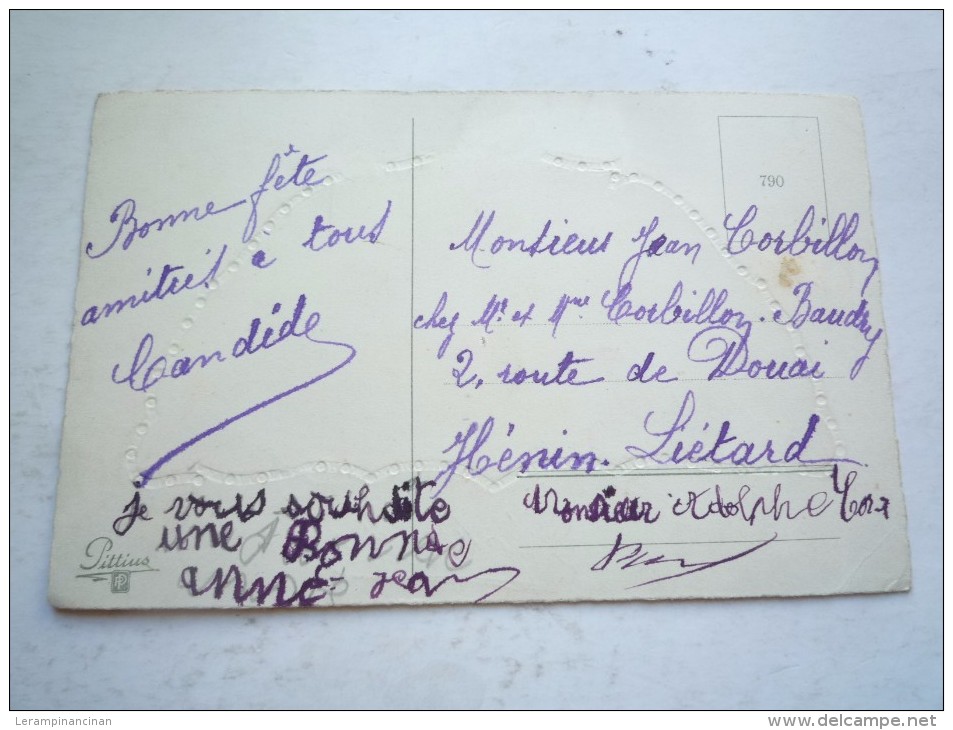 Bonne fête
amitiés a tous
Candide
790
Monsieur Jean Corbillon
chez Mr et Mme Corbillon-Baudry
2, route de Douai
Hénin-Liétard
je vous souhaite
une Bonne
anné Jean
Monsieur Adolphe Cor
Pittius
PP
Lerampinancinan
www.delcampe.net